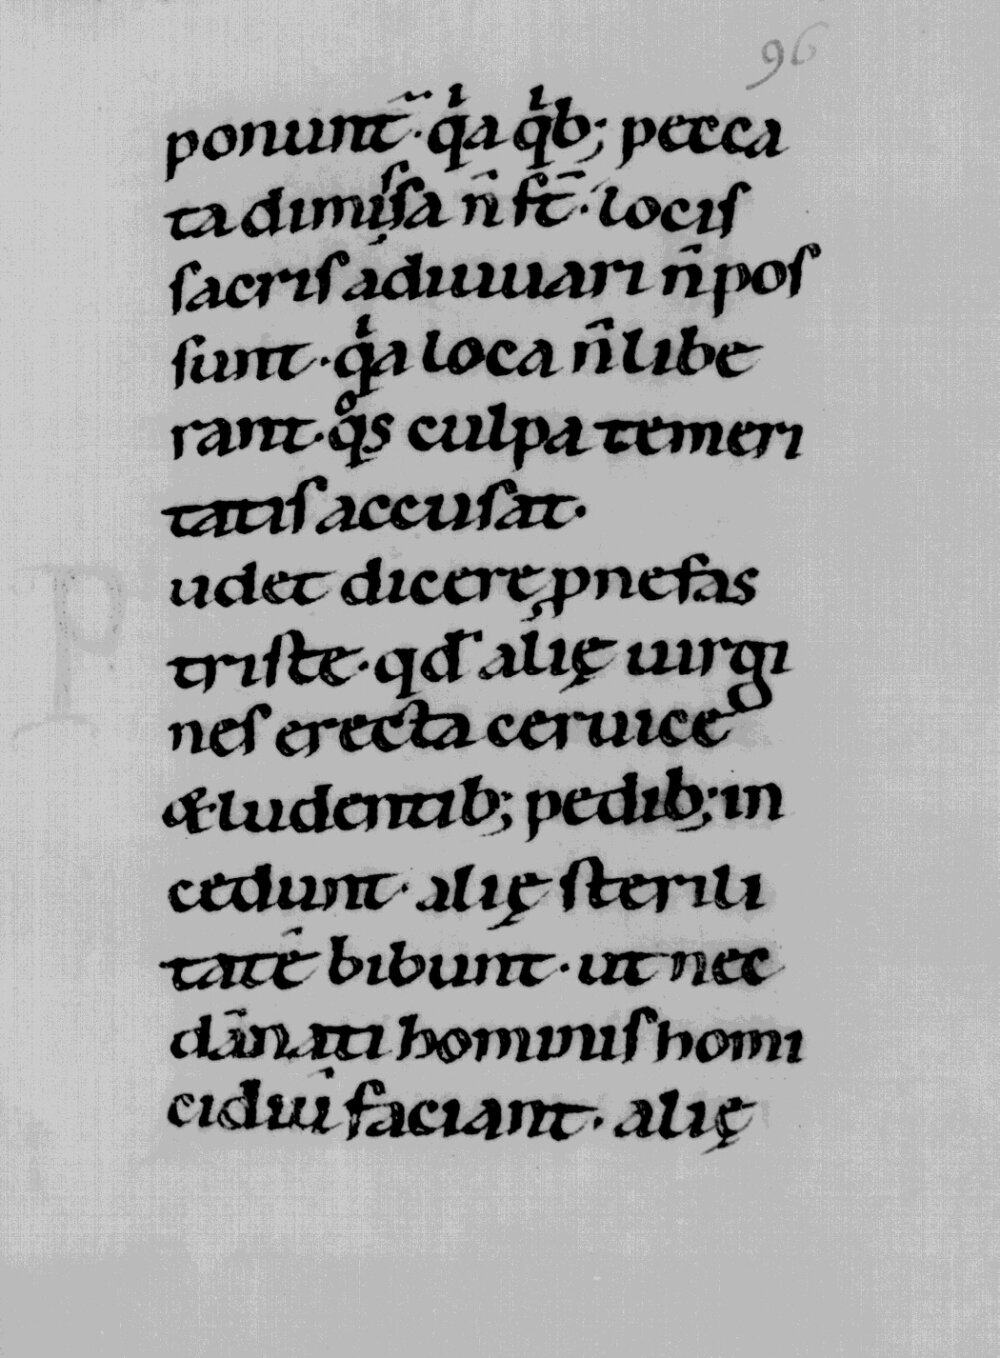 96
ponunt̃·qͥa qͥb; pecca
ta dimiſſa n̄ ſt̄· locis
ſacriſ adiuuari n̄ poſ
ſunt· qͥa loca n̄ libe
rant· qͦs culpa temeri
tatiſ accuſat·
P udet dicere ꝓ nefas
triſte· qđ alię uirgi
neſ erecta ceruice
& ludentib; pedib; in
cedunt· alię ſterili
tatē bibunt· ut nec
dānati hominiſ homi
cidiū faciant· alię